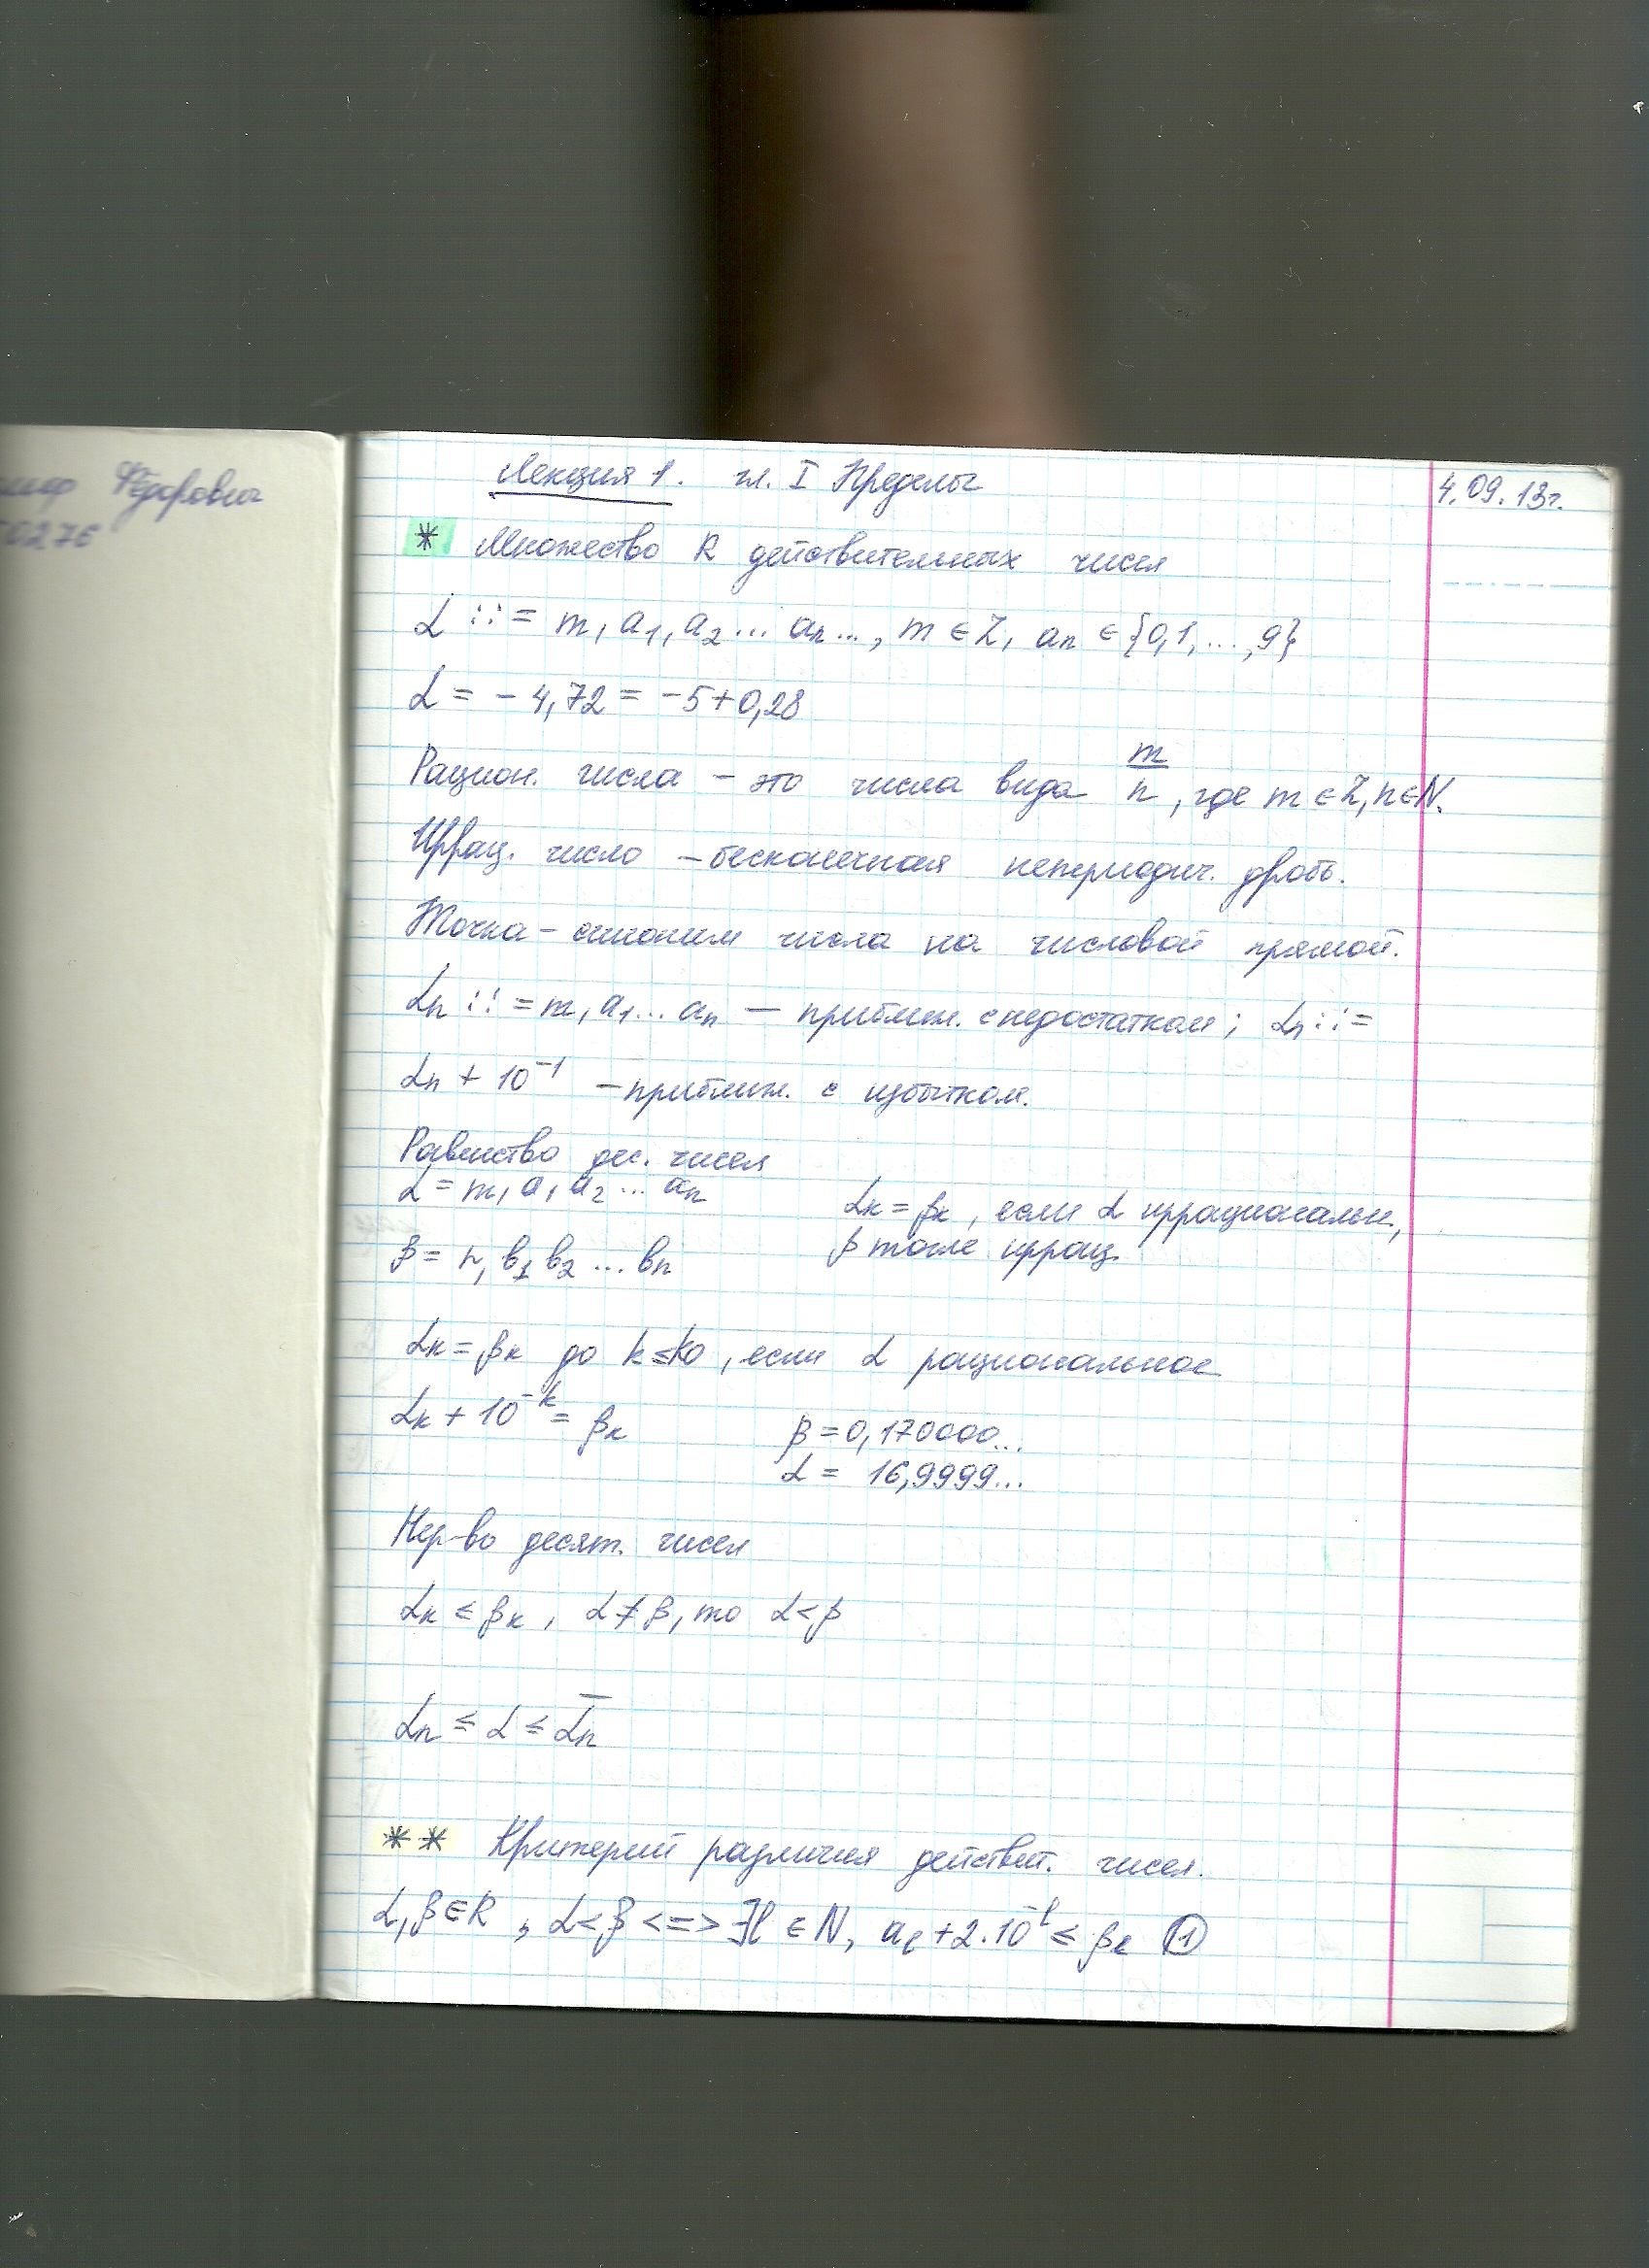 Фёдорович
0276
Лекция 1. гл. I Пределы
4.09.13г.
* Множество R действительных чисел
α ::= m, a₁, a₂ ... aₙ ..., m ∈ Z, aₙ ∈ {0,1, ..., 9}
α = - 4,72 = -5+0,28
Рацион. числа - это числа вида m/n, где m ∈ Z, n ∈ N.
Иррац. число - бесконечная непериодич. дробь.
Точка - синоним числа на числовой прямой.
αₙ ::= m, a₁ ... aₙ — приближ. с недостатком; αₙ ::=
αₙ + 10⁻¹ - приближ. с избытком.
Равенство дес. чисел
α = m, a₁ a₂ ... aₙ
αₖ = βₖ, если α иррациональн.,
β = n, b₁ b₂ ... bₙ
β тоже иррац.
αₖ = βₖ до k ≤ k₀, если α рациональное
αₖ + 10⁻ᵏ = βₖ
β = 0,170000...
α = 16,9999...
Нер-во десят. чисел
αₖ ≤ βₖ, α ≠ β, то α < β
αₙ ≤ α ≤ α̅ₙ
** Критерий различия действит. чисел.
α, β ∈ R, α < β <=> ∃l ∈ N, a_l + 2·10⁻ˡ ≤ β_l ①